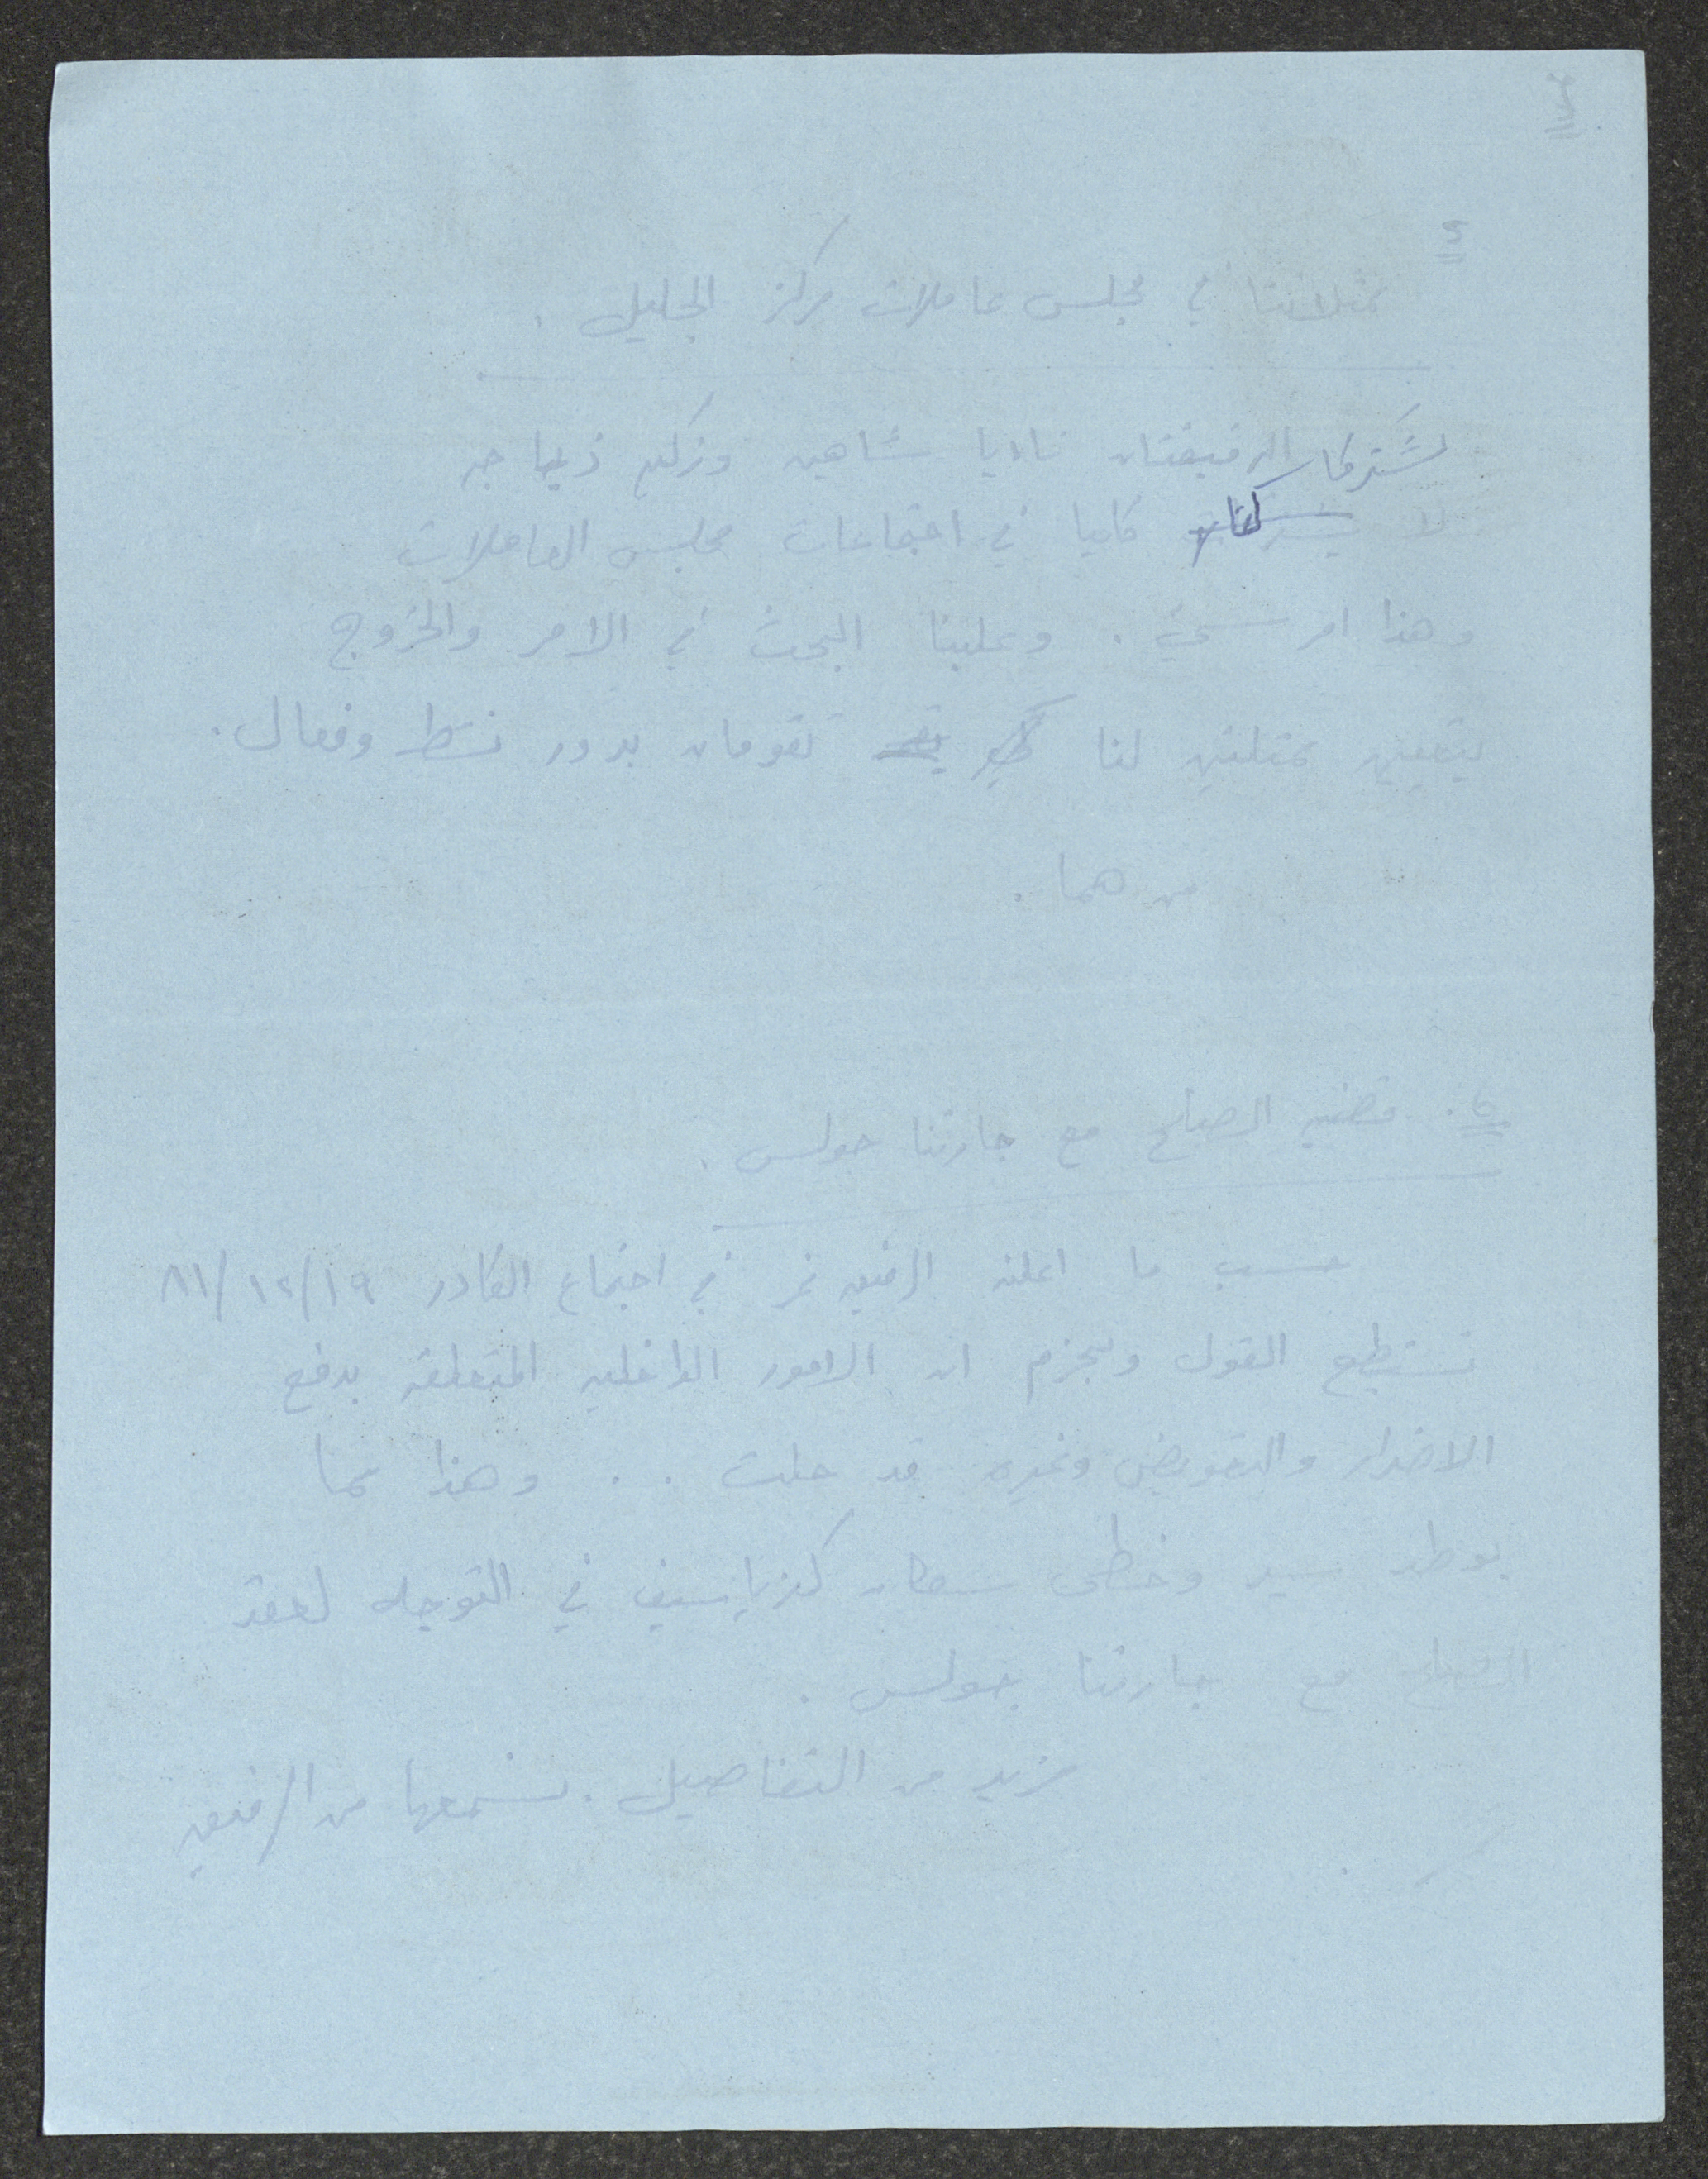 ممثلاتنا في مجلس عاملات مركز الجليل .
تشتركا الرفيقتان ناديا شاهين
لا كليا في اجتماعات مجلس العاملات
وهذا امر سيئ . وعلينا البحث في الامر والخروج
بتعيين ممثلتين لنا تقومان بدور نشط وفعال .
من هما .
قضيه الصلح مع جارتنا جولس .
حسب ما اعلنه الرفيق نمر في اجتماع الكادر ١٩/١٢/٨١
نستطيع القول وبجزم ان الامور الداخليه المتعلقه بدفع
الاضرار والتعويض وغيره قد حلت . . وهذا مما
يوطد سير وخطى سكان كفرياسيف في التوجه لعقد
الصلح مع جارتنا جولس .
مزيد من التفاصيل . نسمعها من الرفيق